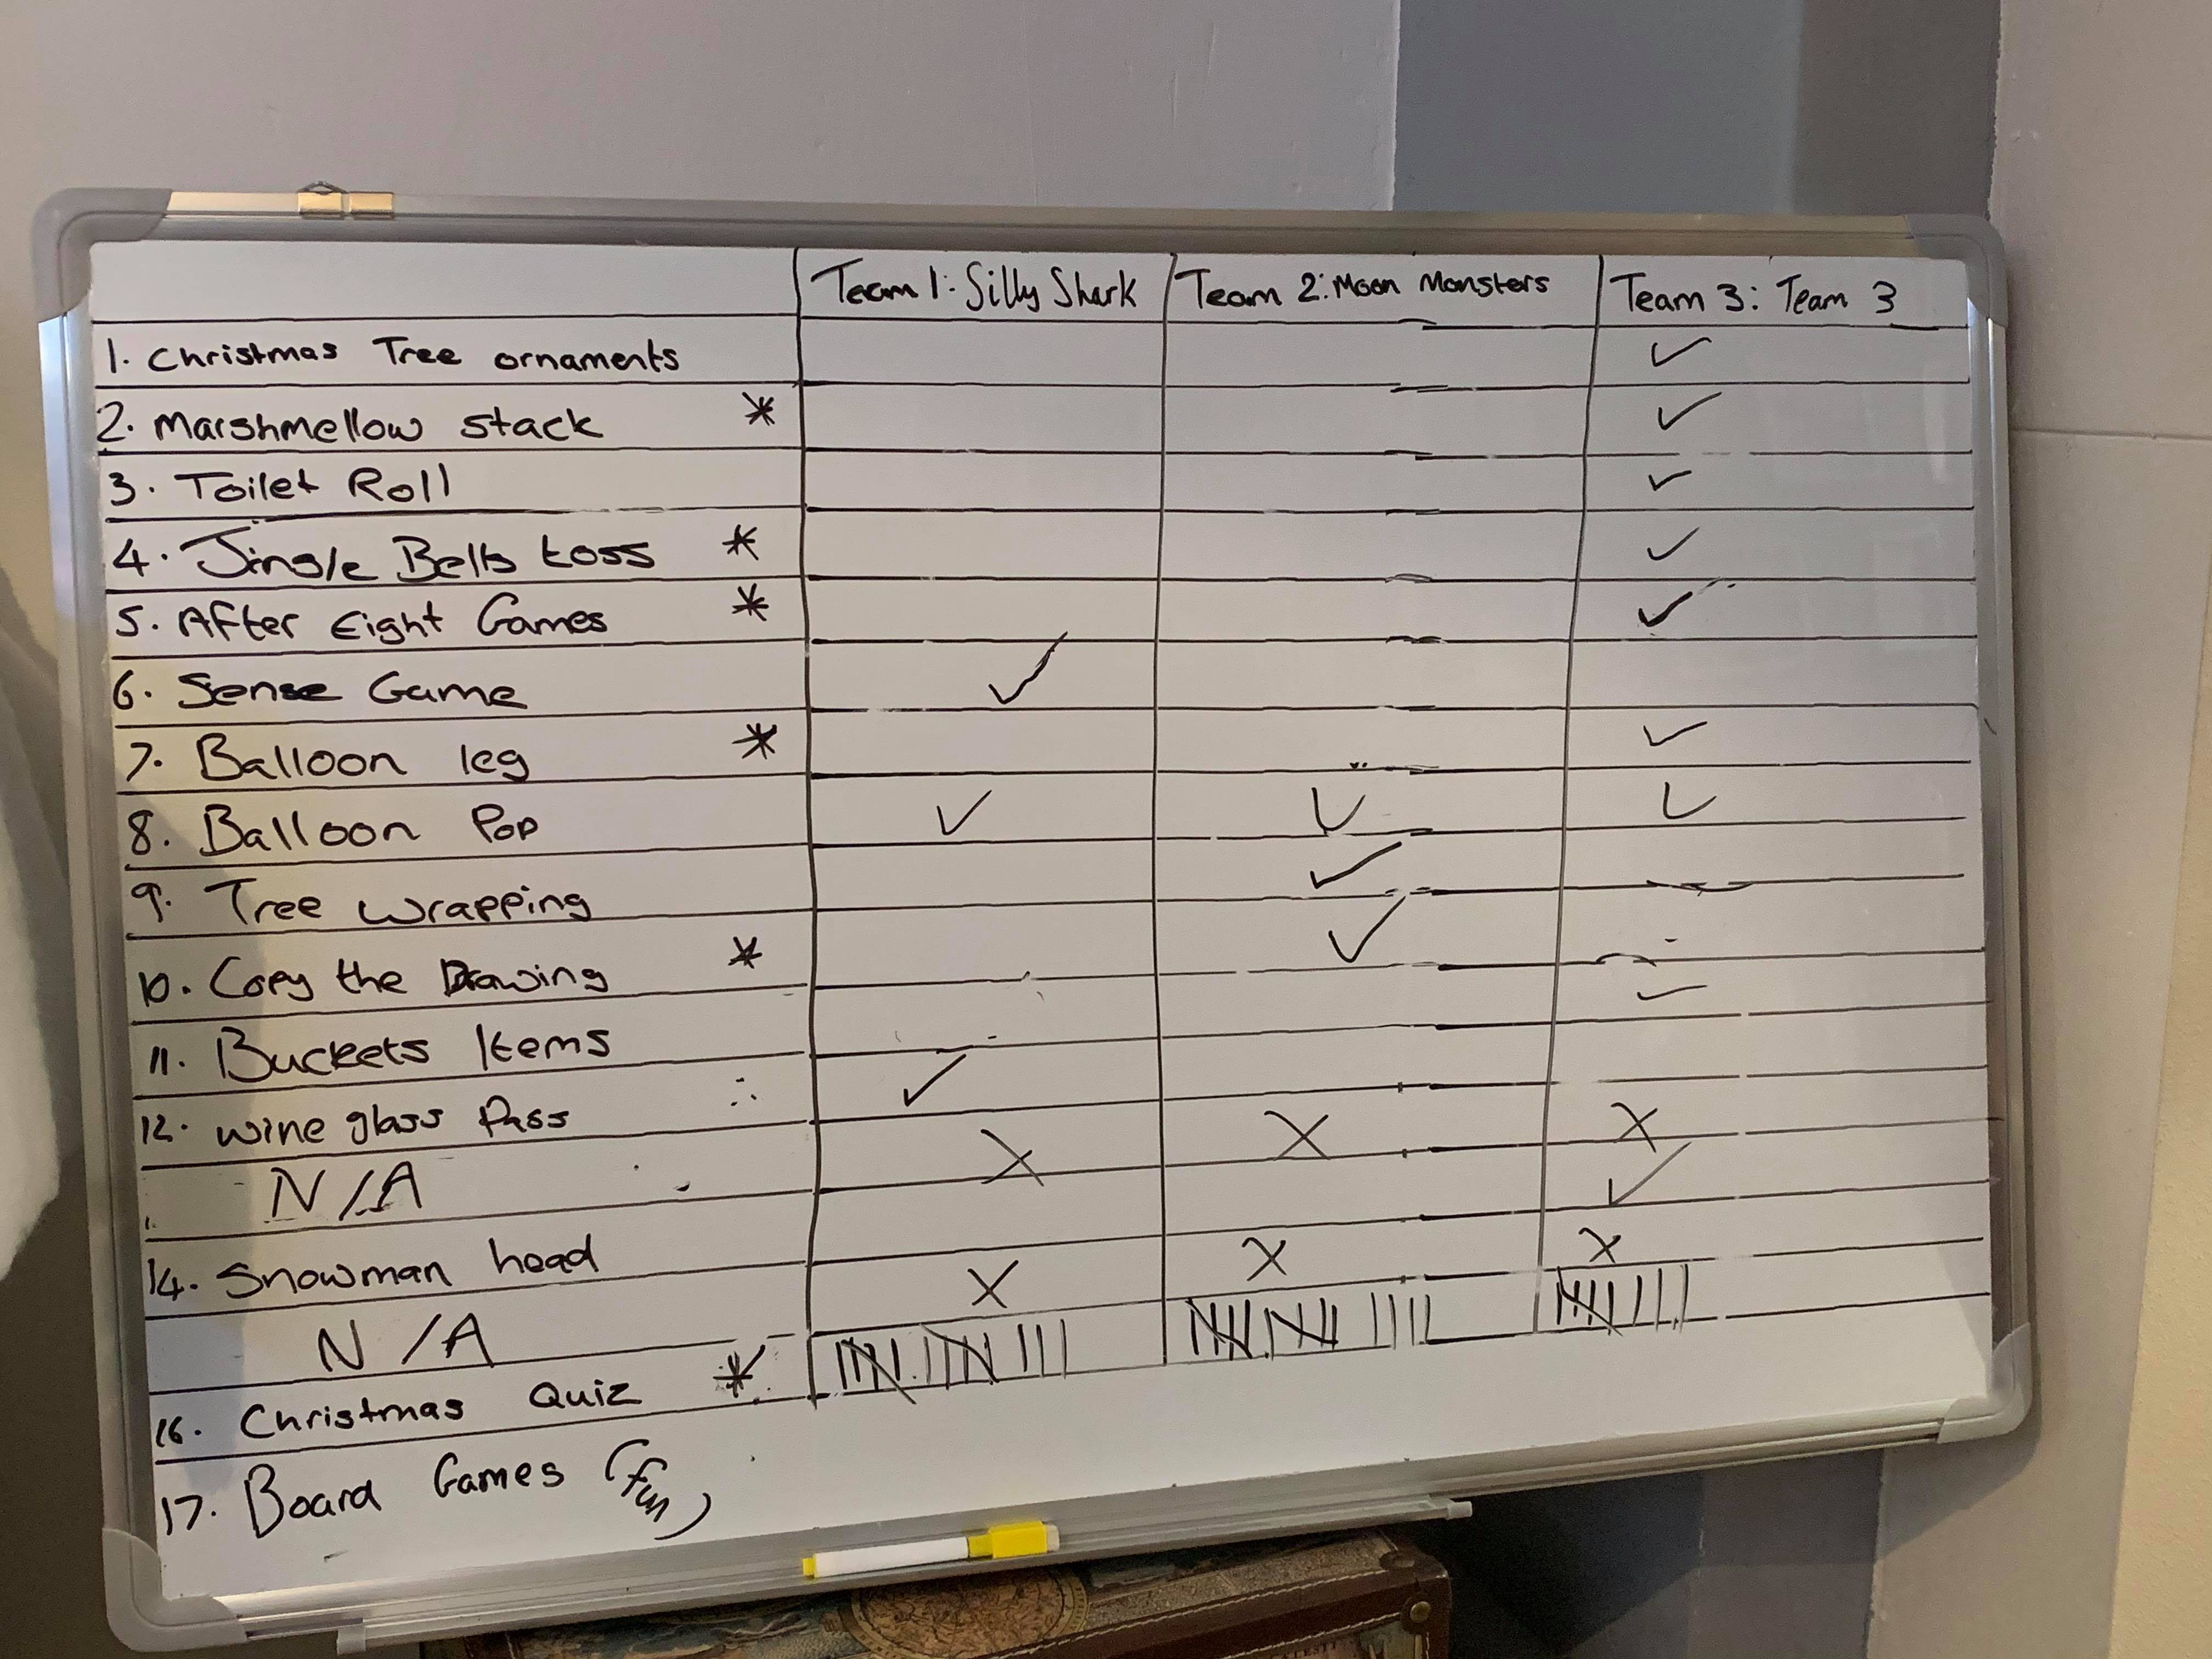 Team 1: Silly Shark Team 2: Moon Monsters Team 3: Team 3
1. Christmas Tree ornaments ✓
2. Marshmellow stack * ✓
3. Toilet Roll ✓
4. Jingle Bells toss * ✓
5. After Eight Games * ✓
6. Sense Game ✓
7. Balloon leg * ✓
8. Balloon Pop ✓ ✓ ✓
9. Tree wrapping ✓
10. Copy the Drawing * ✓
11. Buckets Items ✓
12. wine glass Pass ✓
N/A X X X
14. Snowman head ✓
N/A X X X
16. Christmas Quiz *
17. Board Games (fun)